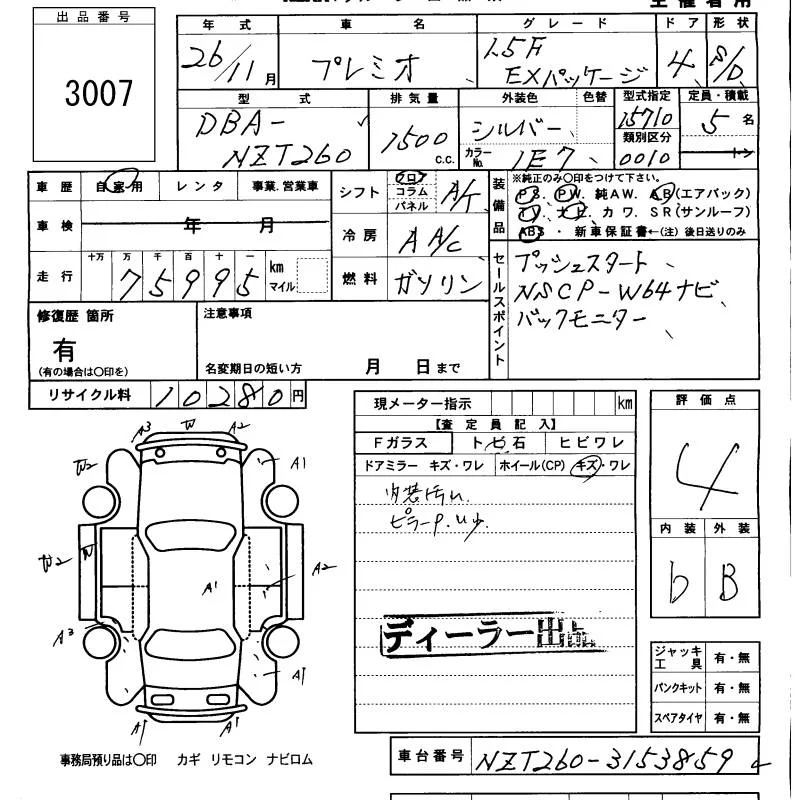 主催者用
出品番号
3007
年式 車名 グレード ドア 形状
26/11月 プレミオ 1.5F EXパッケージ 4 S/D
型式 排気量 外装色 色替 型式指定 定員・積載
DBA-NZT260 1500 c.c. シルバー 15710 5名
カラーNo. 1E7 類別区分 0010
車歴 自家用 レンタ 事業.営業車
車検 年 月
走行 十万 万 千 百 十 一
75995 km マイル
シフト フロア コラム パネル A/T
冷房 AA/C
燃料 ガソリン
装備品
※純正のみ○印をつけて下さい。
PS. PW. 純AW. AB(エアバック)
TV. ナビ. カワ. SR(サンルーフ)
ABS・新車保証書←(注)後日送りのみ
セールスポイント
プッシュスタート
NSCP-W64ナビ
バックモニター
修復歴 箇所
有
(有の場合は○印を)
注意事項
名変期日の短い方 月 日まで
リサイクル料 10280円
現メーター指示 km
【査定員記入】
Fガラス トビ石 ヒビワレ
ドアミラー キズ・ワレ ホイール(CP) キズ・ワレ
内装汚れ
ピラーP.
ディーラー出品
評価点
4
内装 外装
b B
ジャッキ工具 有・無
パンクキット 有・無
スペアタイヤ 有・無
A3 W A2
W2 A1
W2 W A1 A2
A3 A1
A1 A1
事務局預り品は○印 カギ リモコン ナビロム
車台番号 NZT260-3153859